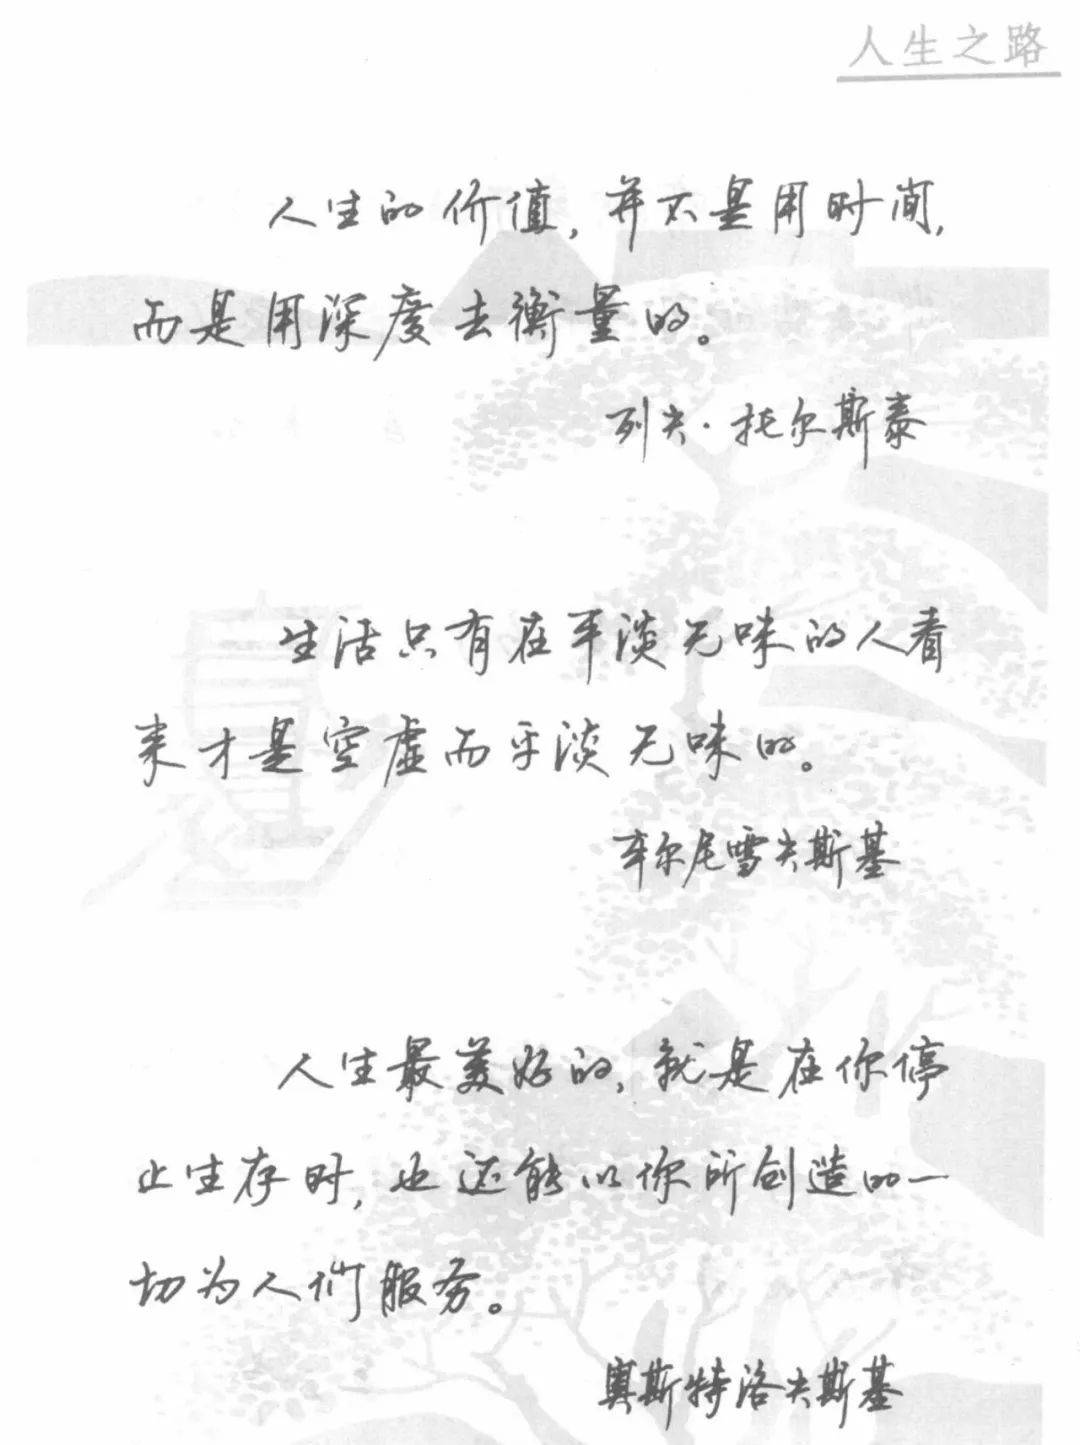 人生之路
人生的价值，并不是用时间，
而是用深度去衡量的。
列夫·托尔斯泰
生活只有在平淡无味的人看
来才是空虚而平淡无味的。
车尔尼雪夫斯基
人生最美好的，就是在你停
止生存时，也还能以你所创造的一
切为人们服务。
奥斯特洛夫斯基